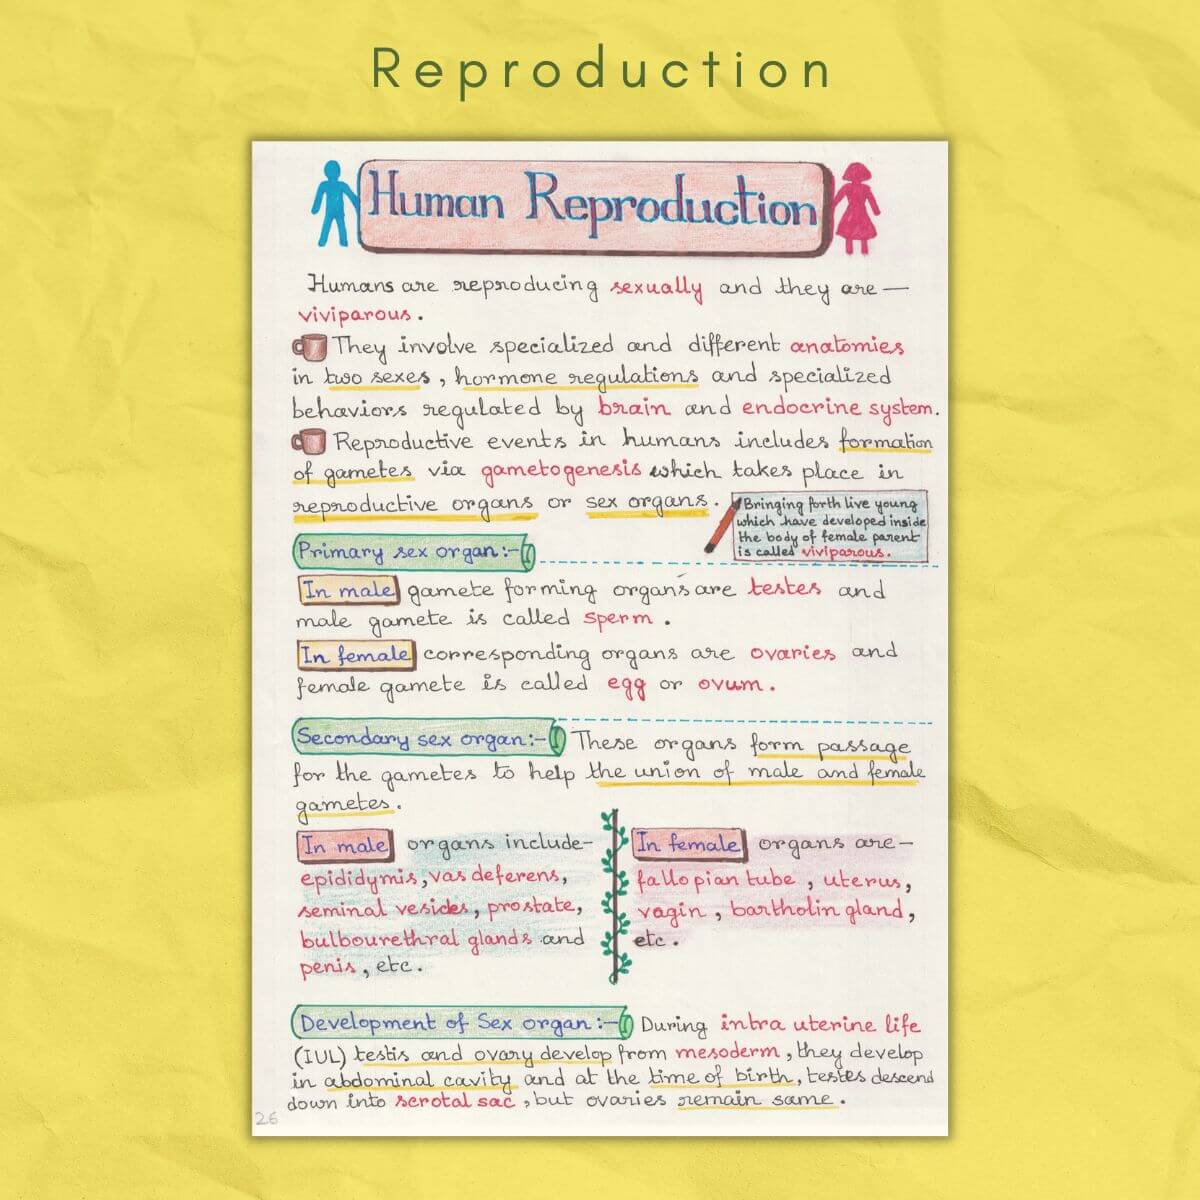 Reproduction
Human Reproduction
Humans are reproducing sexually and they are —
viviparous.
They involve specialized and different anatomies
in two sexes, hormone regulations and specialized
behaviors regulated by brain and endocrine system.
Reproductive events in humans includes formation
of gametes via gametogenesis which takes place in
reproductive organs or sex organs.
Bringing forth live young
which have developed inside
the body of female parent
is called viviparous.
Primary sex organ:-
In male gamete forming organs are testes and
male gamete is called sperm.
In female corresponding organs are ovaries and
female gamete is called egg or ovum.
Secondary sex organ:- These organs form passage
for the gametes to help the union of male and female
gametes.
In male organs include-
epididymis, vas deferens,
seminal vesicles, prostate,
bulbourethral glands and
penis, etc.
In female organs are-
fallopian tube, uterus,
vagin, bartholin gland,
etc.
Development of Sex organ:- During intra uterine life
(IUL) testis and ovary develop from mesoderm, they develop
in abdominal cavity and at the time of birth, testes descend
down into scrotal sac, but ovaries remain same.
26